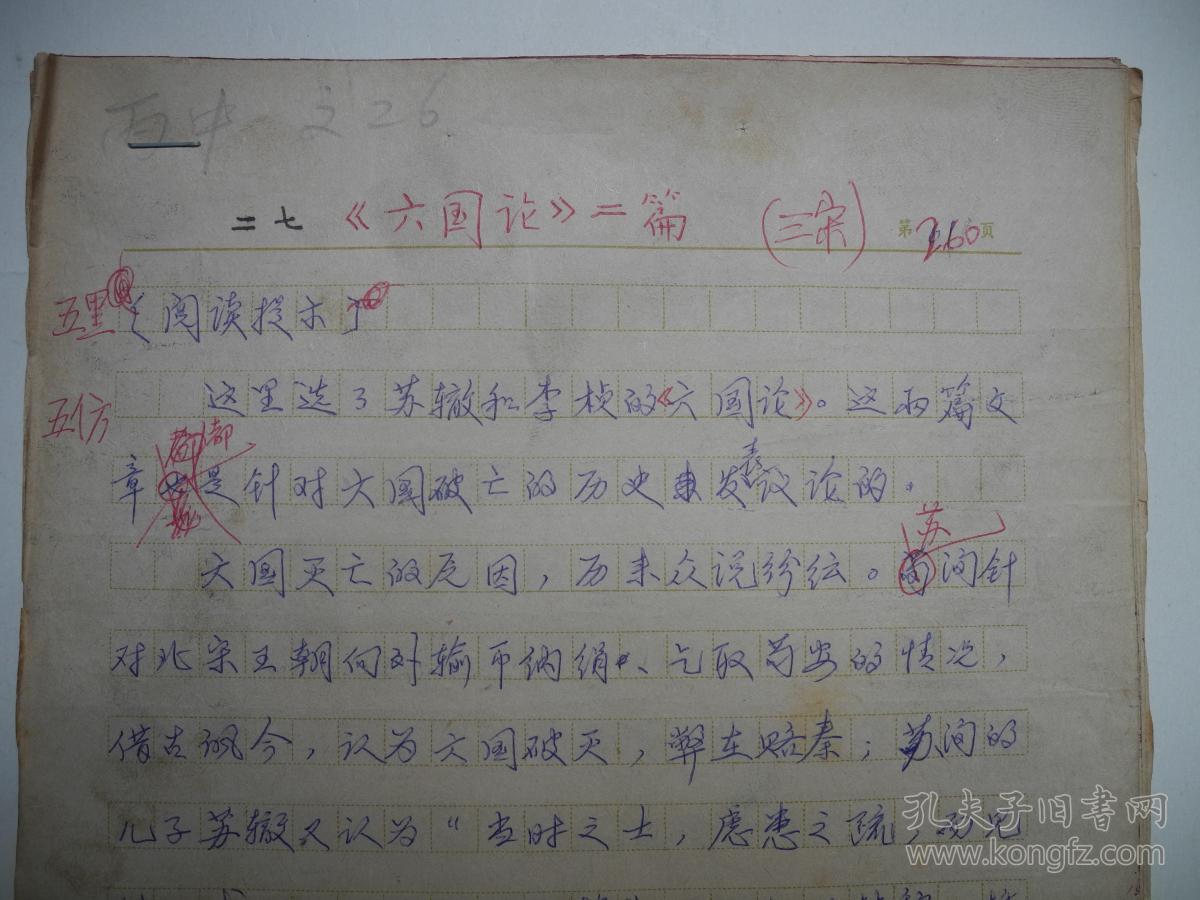 丙中 文26
二七 《六国论》二篇 (三宋) 第260页
五黑 〔阅读提示〕
五仿 这里选了苏辙和李桢的《六国论》。这两篇文
章都是针对六国破亡的历史来发表议论的。
六国灭亡的原因,历来众说纷纭。苏洵针
对北宋王朝向外输币纳绢、乞取苟安的情况,
借古讽今,认为六国破灭,弊在赂秦;苏洵的
儿子苏辙又认为“当时之士,虑患之疏,而见
孔夫子旧书网
www.kongfz.com